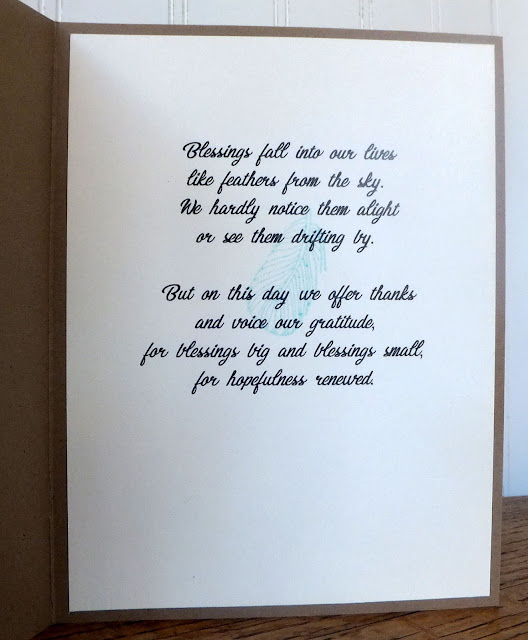 Blessings fall into our lives
like feathers from the sky.
We hardly notice them alight
or see them drifting by.
But on this day we offer thanks
and voice our gratitude,
for blessings big and blessings small,
for hopefulness renewed.